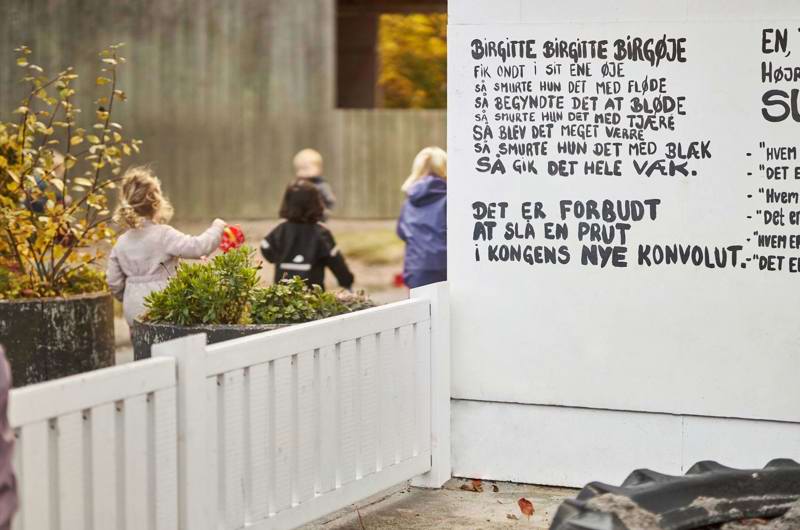 BIRGITTE BIRGITTE BIRGØJE
FIK ONDT I SIT ENE ØJE
SÅ SMURTE HUN DET MED FLØDE
SÅ BEGYNDTE DET AT BLØDE
SÅ SMURTE HUN DET MED TJÆRE
SÅ BLEV DET MEGET VÆRRE
SÅ SMURTE HUN DET MED BLÆK
SÅ GIK DET HELE VÆK.
DET ER FORBUDT
AT SLÅ EN PRUT
I KONGENS NYE KONVOLUT.
EN,
HØJR
- "HVEM
- "DET E
- "HVEM
- "Det er
- "HVEM ER
- "DET ER